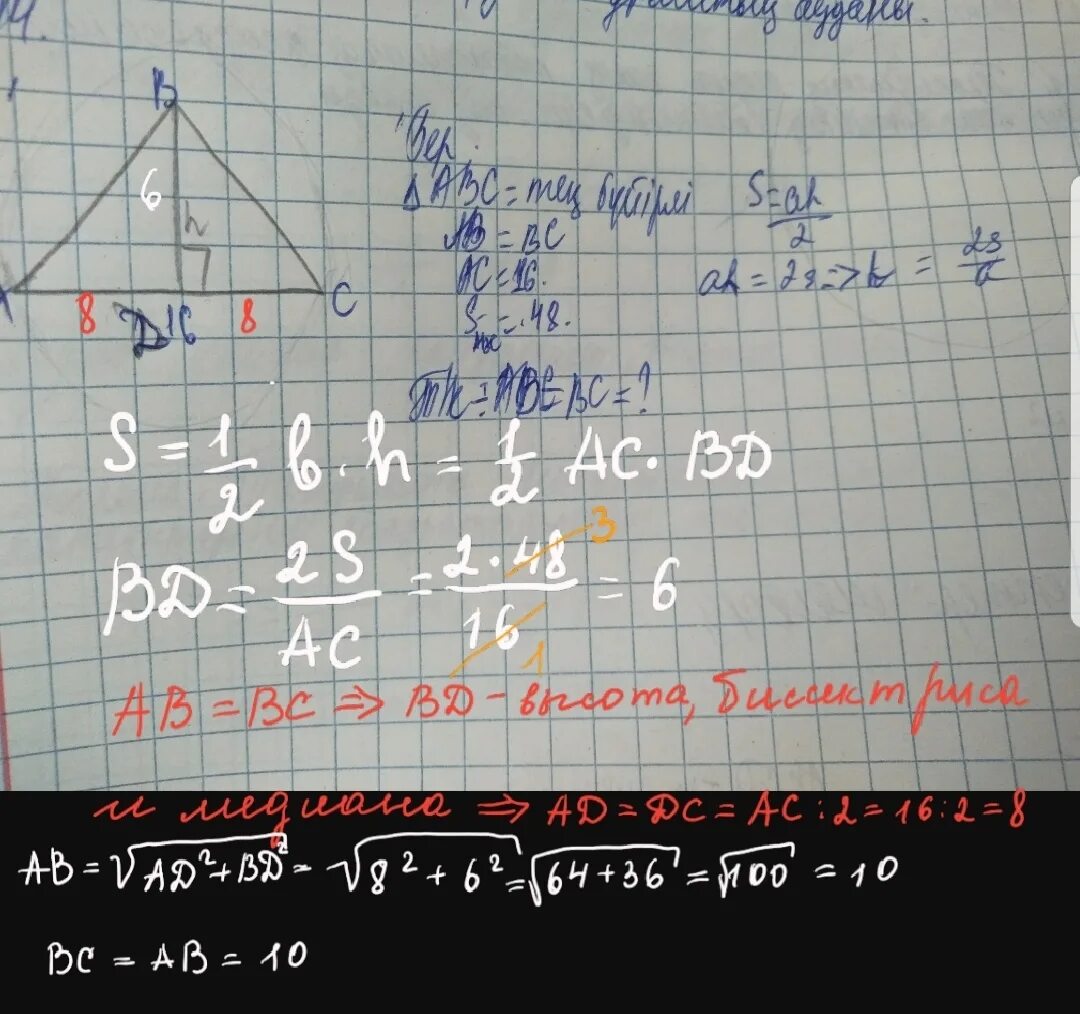 ауданы.
B
6
h
A
C
8
D
16
8
Бер.
Δ ABC = тең бүйірлі
AB = BC
AC = 16.
S = 48.
ABC
Т/к = AB = BC = ?
S = ah/2
ah = 2s => h = 2s/a
S = 1/2 b · h = 1/2 AC · BD
BD = 2S/AC = 2 · 48/16 = 6
3
1
AB = BC ⇒ BD - высота, биссектриса
и медиана ⇒ AD = DC = AC : 2 = 16 : 2 = 8
AB = √AD² + BD² = √8² + 6² = √64 + 36 = √100 = 10
BC = AB = 10